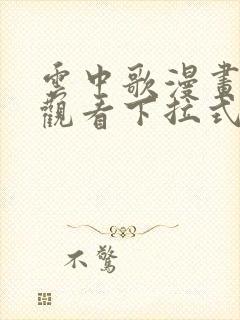 雲中歌漫畫
觀看下拉式
不驚